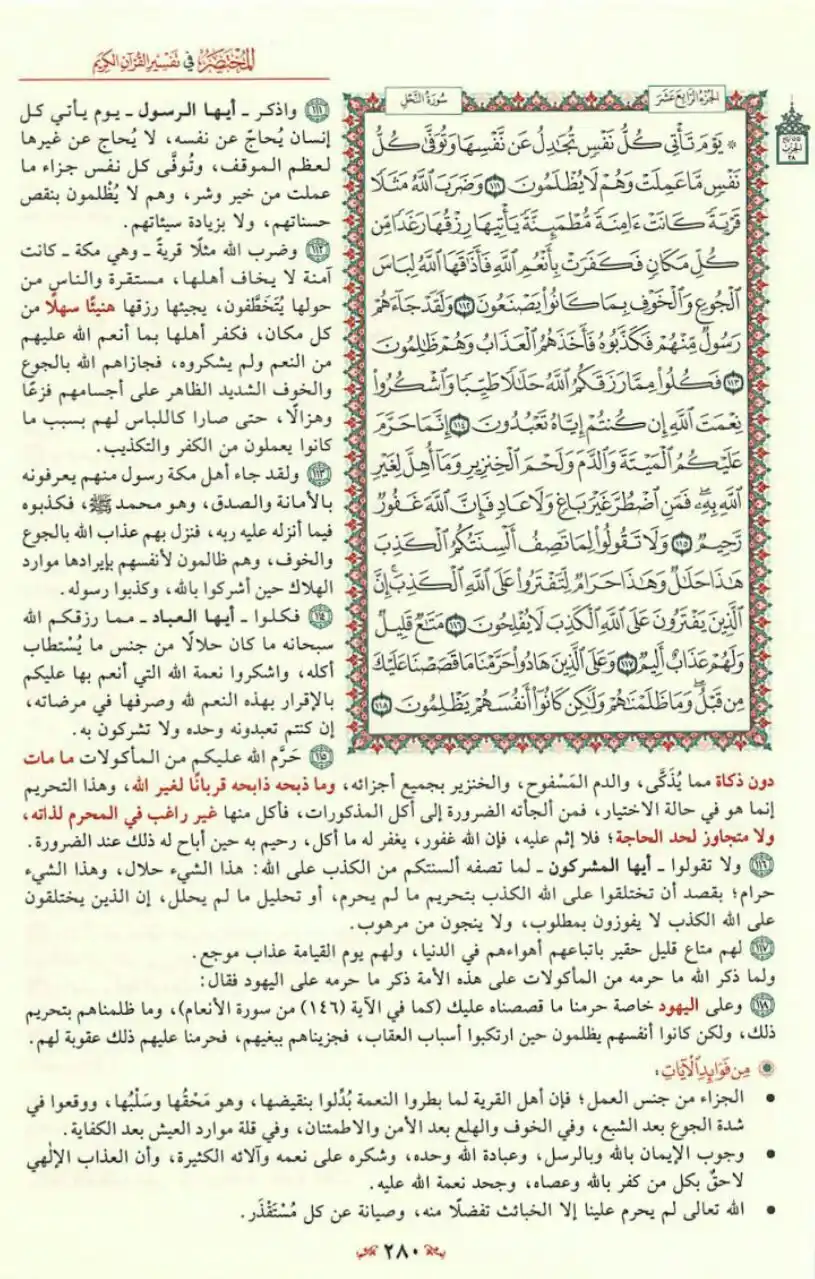 المختصر في تفسير القرآن الكريم
الجزء الرابع عشر
سورة النحل
۞ يَوْمَ تَأْتِي كُلُّ نَفْسٍ تُجَادِلُ عَن نَّفْسِهَا وَتُوَفَّىٰ كُلُّ
نَفْسٍ مَّا عَمِلَتْ وَهُمْ لَا يُظْلَمُونَ ١١١ وَضَرَبَ اللَّهُ مَثَلًا
قَرْيَةً كَانَتْ ءَامِنَةً مُّطْمَئِنَّةً يَأْتِيهَا رِزْقُهَا رَغَدًا مِّن
كُلِّ مَكَانٍ فَكَفَرَتْ بِأَنْعُمِ اللَّهِ فَأَذَاقَهَا اللَّهُ لِبَاسَ
الْجُوعِ وَالْخَوْفِ بِمَا كَانُوا يَصْنَعُونَ ١١٢ وَلَقَدْ جَاءَهُمْ
رَسُولٌ مِّنْهُمْ فَكَذَّبُوهُ فَأَخَذَهُمُ الْعَذَابُ وَهُمْ ظَالِمُونَ
١١٣ فَكُلُوا مِمَّا رَزَقَكُمُ اللَّهُ حَلَالًا طَيِّبًا وَاشْكُرُوا
نِعْمَتَ اللَّهِ إِن كُنتُمْ إِيَّاهُ تَعْبُدُونَ ١١٤ إِنَّمَا حَرَّمَ
عَلَيْكُمُ الْمَيْتَةَ وَالدَّمَ وَلَحْمَ الْخِنزِيرِ وَمَا أُهِلَّ لِغَيْرِ
اللَّهِ بِهِ ۖ فَمَنِ اضْطُرَّ غَيْرَ بَاغٍ وَلَا عَادٍ فَإِنَّ اللَّهَ غَفُورٌ
رَّحِيمٌ ١١٥ وَلَا تَقُولُوا لِمَا تَصِفُ أَلْسِنَتُكُمُ الْكَذِبَ
هَٰذَا حَلَالٌ وَهَٰذَا حَرَامٌ لِّتَفْتَرُوا عَلَى اللَّهِ الْكَذِبَ ۚ إِنَّ
الَّذِينَ يَفْتَرُونَ عَلَى اللَّهِ الْكَذِبَ لَا يُفْلِحُونَ ١١٦ مَتَاعٌ قَلِيلٌ
وَلَهُمْ عَذَابٌ أَلِيمٌ ١١٧ وَعَلَى الَّذِينَ هَادُوا حَرَّمْنَا مَا قَصَصْنَا عَلَيْكَ
مِن قَبْلُ ۖ وَمَا ظَلَمْنَاهُمْ وَلَٰكِن كَانُوا أَنفُسَهُمْ يَظْلِمُونَ ١١٨
١١١ واذكر ـ أيها الرسول ـ يوم يأتي كل
إنسان يُحاجّ عن نفسه، لا يُحاج عن غيرها
لعظم الموقف، وتُوفَّى كل نفس جزاء ما
عملت من خير وشر، وهم لا يُظْلمون بنقص
حسناتهم، ولا بزيادة سيئاتهم.
١١٢ وضرب الله مثلًا قريةً ـ وهي مكة ـ كانت
آمنة لا يخاف أهلها، مستقرة والناس من
حولها يُتَخَطَّفون، يجيئها رزقها هنيئًا سهلًا من
كل مكان، فكفر أهلها بما أنعم الله عليهم
من النعم ولم يشكروه، فجازاهم الله بالجوع
والخوف الشديد الظاهر على أجسامهم فزعًا
وهزالًا، حتى صارا كاللباس لهم بسبب ما
كانوا يعملون من الكفر والتكذيب.
١١٣ ولقد جاء أهل مكة رسول منهم يعرفونه
بالأمانة والصدق، وهو محمد ﷺ، فكذبوه
فيما أنزله عليه ربه، فنزل بهم عذاب الله بالجوع
والخوف، وهم ظالمون لأنفسهم بإيرادها موارد
الهلاك حين أشركوا بالله، وكذبوا رسوله.
فكلوا ـ أيها العباد ـ مما رزقكم الله
سبحانه ما كان حلالًا من جنس ما يُسْتطاب
أكله، واشكروا نعمة الله التي أنعم بها عليكم
بالإقرار بهذه النعم لله وصرفها في مرضاته،
إن كنتم تعبدونه وحده ولا تشركون به.
١١٥ حَرَّم الله عليكم من المأكولات ما مات
دون ذكاة مما يُذَكَّى، والدم المَسْفوح، والخنزير بجميع أجزائه، وما ذبحه ذابحه قربانًا لغير الله، وهذا التحريم
إنما هو في حالة الاختيار، فمن ألجأته الضرورة إلى أكل المذكورات، فأكل منها غير راغب في المحرم لذاته،
ولا متجاوز لحد الحاجة؛ فلا إثم عليه، فإن الله غفور، يغفر له ما أكل، رحيم به حين أباح له ذلك عند الضرورة.
١١٦ ولا تقولوا ـ أيها المشركون ـ لما تصفه ألسنتكم من الكذب على الله: هذا الشيء حلال، وهذا الشيء
حرام؛ بقصد أن تختلقوا على الله الكذب بتحريم ما لم يحرم، أو تحليل ما لم يحلل، إن الذين يختلقون
على الله الكذب لا يفوزون بمطلوب، ولا ينجون من مرهوب.
١١٧ لهم متاع قليل حقير باتباعهم أهواءهم في الدنيا، ولهم يوم القيامة عذاب موجع.
ولما ذكر الله ما حرمه من المأكولات على هذه الأمة ذكر ما حرمه على اليهود فقال:
١١٨ وعلى اليهود خاصة حرمنا ما قصصناه عليك (كما في الآية (١٤٦) من سورة الأنعام)، وما ظلمناهم بتحريم
ذلك، ولكن كانوا أنفسهم يظلمون حين ارتكبوا أسباب العقاب، فجزيناهم ببغيهم، فحرمنا عليهم ذلك عقوبة لهم.
من فوائد الآيات:
• الجزاء من جنس العمل؛ فإن أهل القرية لما بطروا النعمة بُدِّلوا بنقيضها، وهو مَحْقُها وسَلْبُها، ووقعوا في
شدة الجوع بعد الشبع، وفي الخوف والهلع بعد الأمن والاطمئنان، وفي قلة موارد العيش بعد الكفاية.
• وجوب الإيمان بالله وبالرسل، وعبادة الله وحده، وشكره على نعمه وآلائه الكثيرة، وأن العذاب الإلٰهي
لاحقٌ بكل من كفر بالله وعصاه، وجحد نعمة الله عليه.
• الله تعالى لم يحرم علينا إلا الخبائث تفضلًا منه، وصيانة عن كل مُسْتَقْذَر.
٢٨٠